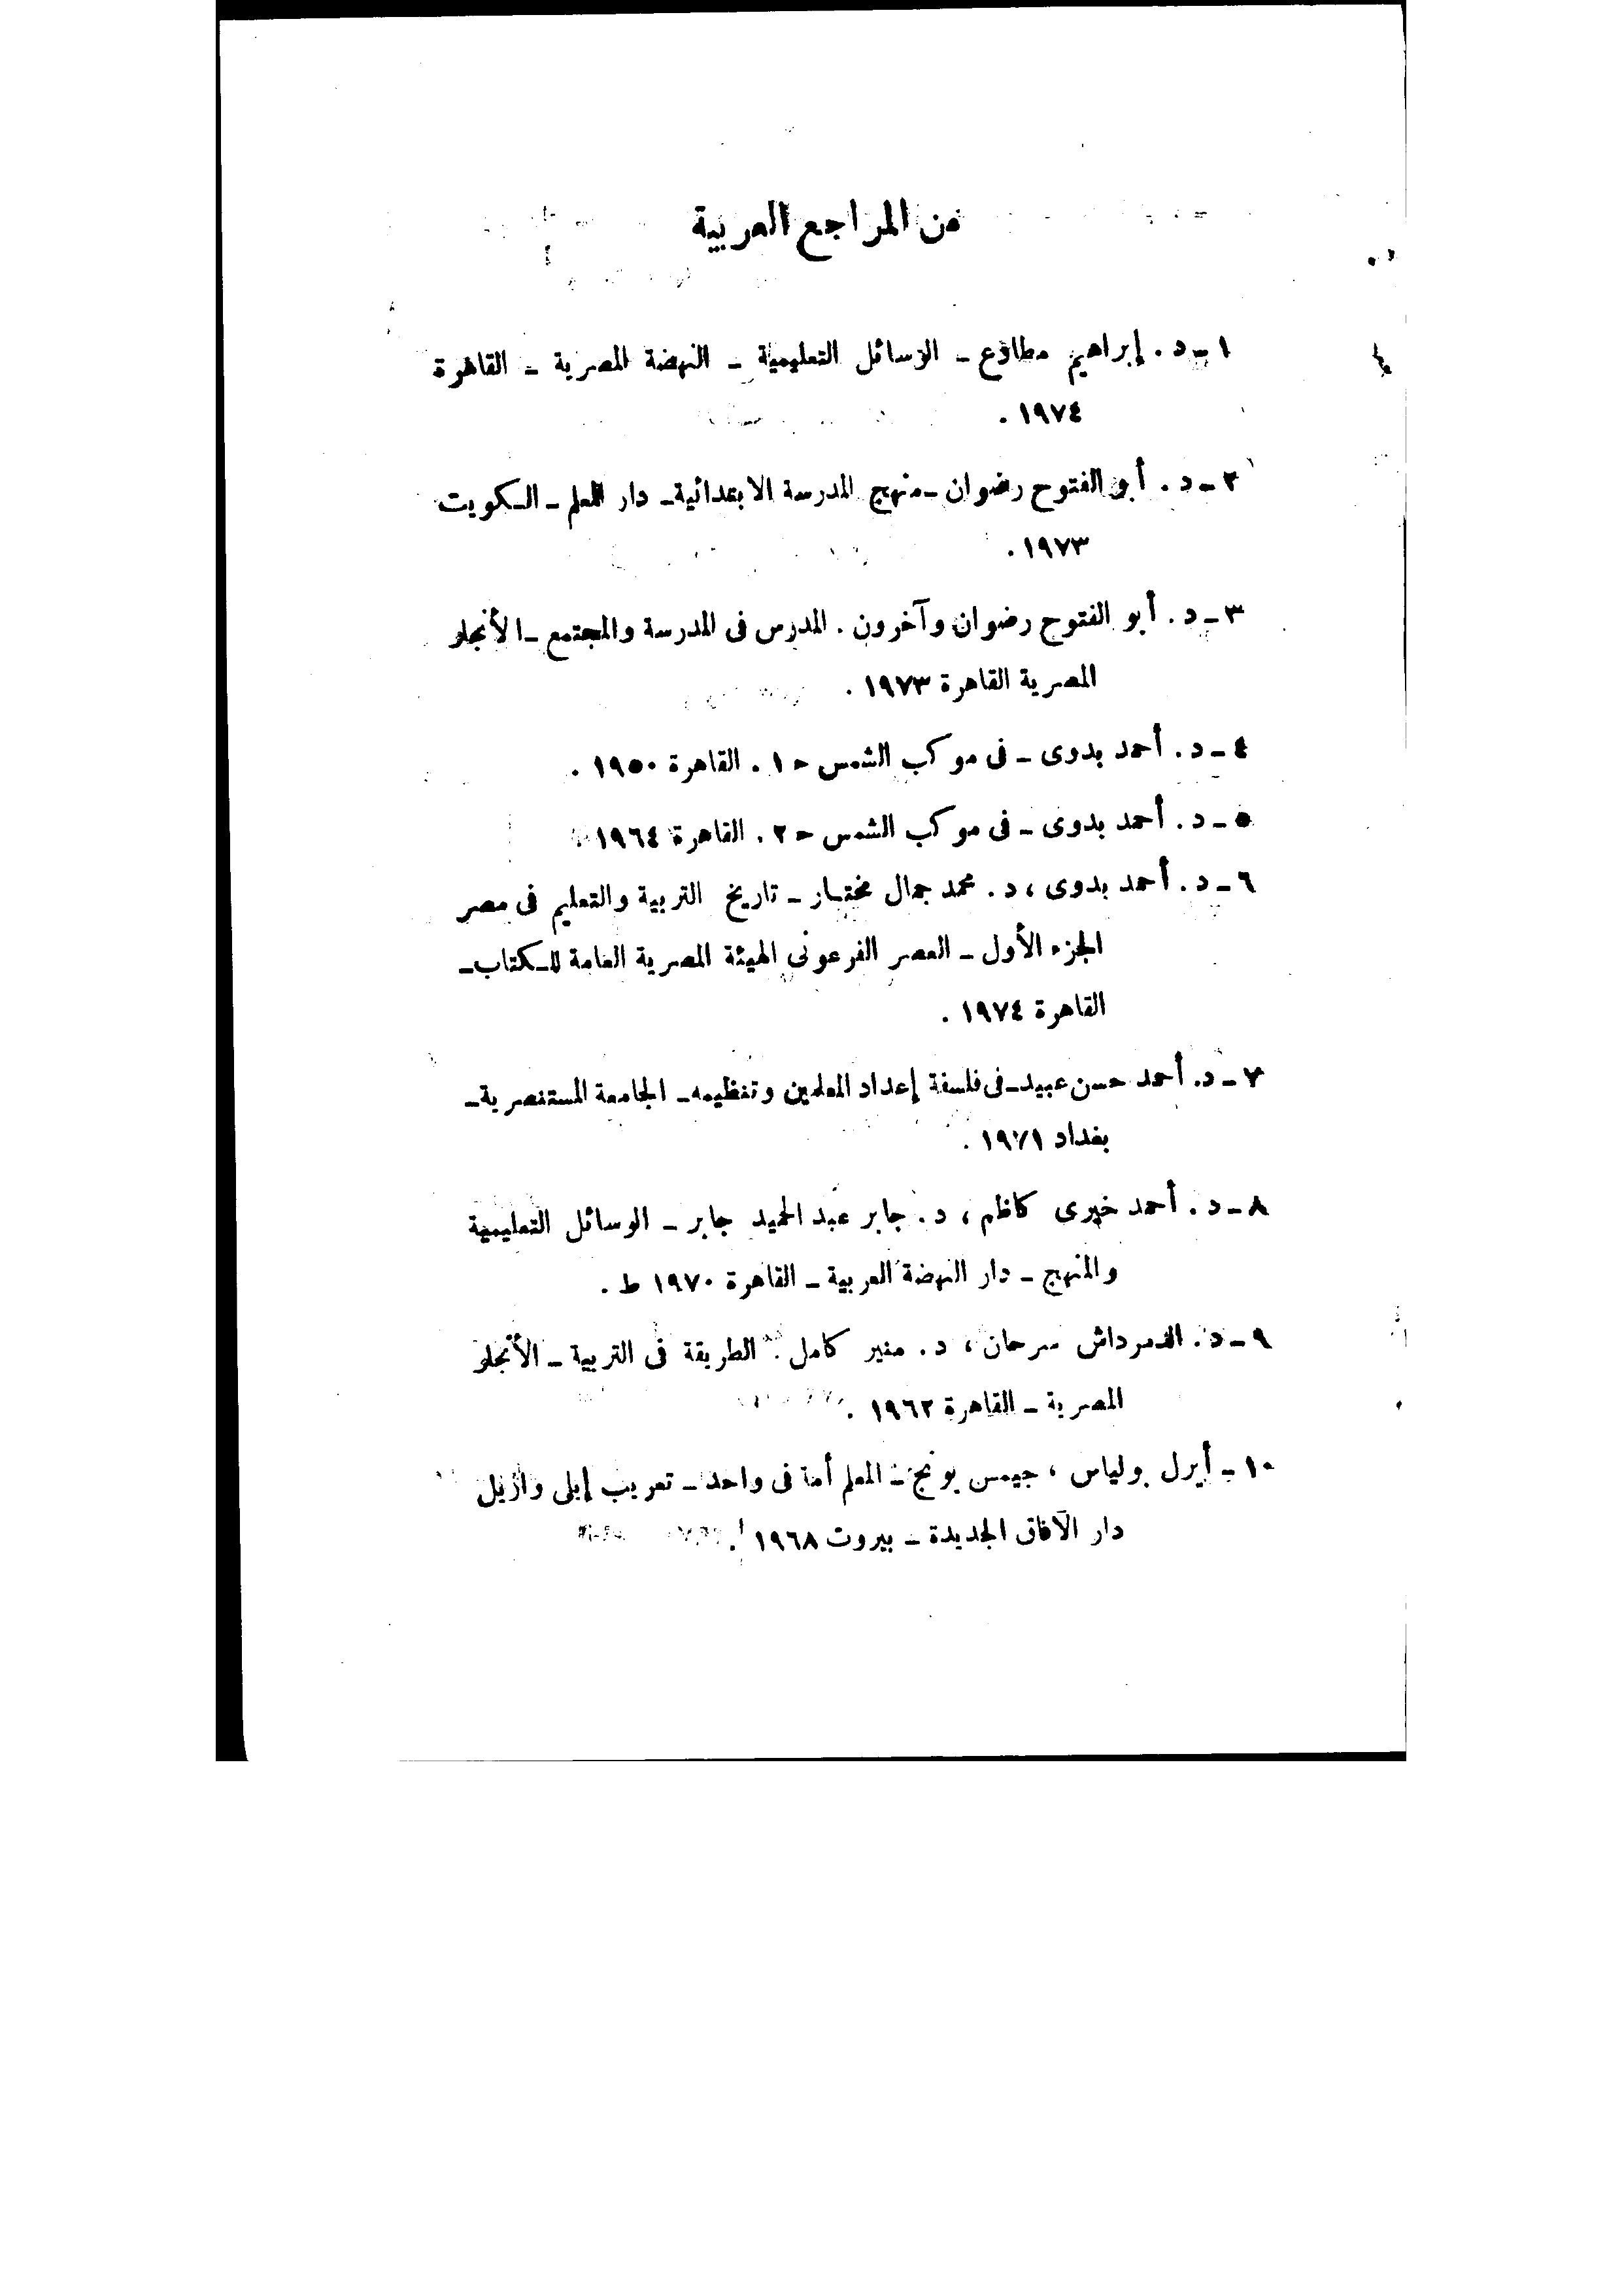 من المراجع العربية
١ - د . إبراهيم مطاوع - الوسائل التعليمية - النهضة المصرية - القاهرة
١٩٧٤ .
٢ - د . أبو الفتوح رضوان - منهج المدرسة الابتدائية - دار المعلم - الكويت
١٩٧٣ .
٣ - د . أبو الفتوح رضوان وآخرون . المدرس فى المدرسة والمجتمع - الأنجلو
المصرية القاهرة ١٩٧٣ .
٤ - د . أحمد بدوى - فى موكب الشمس ح ١ . القاهرة ١٩٥٠ .
٥ - د . أحمد بدوى - فى موكب الشمس ح ٢ . القاهرة ١٩٦٤
٦ - د . أحمد بدوى ، د . محمد جمال مختار - تاريخ التربية والتعليم فى مصر
الجزء الأول - العصر الفرعونى الهيئة المصرية العامة للكتاب -
القاهرة ١٩٧٤ .
٧ - د . أحمد حسن عبيد - فى فلسفة إعداد المعلمين وتنظيمه - الجامعة المستنصرية -
بغداد ١٩٧١ .
٨ - د . أحمد خيرى كاظم ، د . جابر عبد الحميد جابر - الوسائل التعليمية
والمنهج - دار النهضة العربية - القاهرة ١٩٧٠ ط .
٩ - د . الدمرداش سرحان ، د . منير كامل . الطريقة فى التربية - الأنجلو
المصرية - القاهرة ١٩٦٢ .
١٠ - أيرل بولياس ، جيمس يونج - المعلم أمة فى واحد - تعريب إيلى واريل
دار الآفاق الجديدة - بيروت ١٩٦٨ .